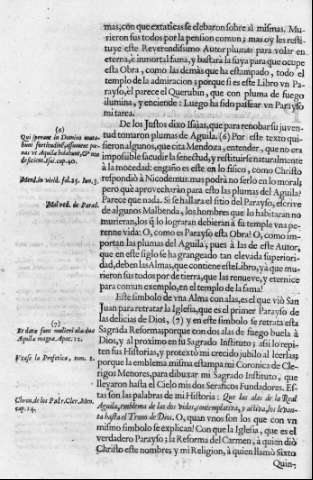 mas, con que extaticas se elebaron sobre al mismas. Mu-
rieron sus todos por la pension comun; mas oy las resti-
tuye este Reverendisimo Autor plumas para volar en
eterna, è inmortal fama, y bastara la suya para que ocupe
esta Obra, como las demàs que ha estampado, todo el
templo de la admiracion; porque si es este Libro vn Pa-
rayso, èl parece el Querubin, que con pluma de fuego
ilumina, y enciende: Luego ha sido passear vn Parayso
mi tarea.
De los Justos dixo Isaias, que para renobar su juven-
tud tomaron plumas de Aguila. (6) Por este texto qui-
sieron algunos, que cita Mendoza, entender, que no era
imposible sacudir la senectud, y restituirse naturalmente
à la mocedad: engaño es este en lo fisico, como Christo
respondiò à Nicodemus: mas podrà no serlo en lo moral;
pero què aprovecharàn para esto las plumas del Aguila?
Parece que nada. Si se hallara el sitio del Parayso, escrive
de algunos Malbenda, los hombres que lo habitaràn no
murieran, los q̃ lo lograran debieran à su temple vna pe-
renne vida: O, como es Parayso esta Obra! O, como im-
portan las plumas del Aguila, pues à las de este Autor,
que en este siglo se ha grangeado tan elevada superiori-
dad, deben las Almas, que contiene este Libro, ya que mu-
rieron sus todos por de tierra, que las renueve, y eternice
para comun exemplo, en el templo de la fama!
Este simbolo de vna Alma con alas, es el que viò San
Juan para retratar la Iglesia, que es el primer Parayso de
las delicias de Dios, (7) y en este simbolo se retrata esta
Sagrada Reforma, porque con dos alas de fuego buela à
Dios, y al proximo en su Sagrado Instituto; asi lo repi-
ten sus Historias, y protexto mi crecido jubilo al leerlas;
porque la emblema misma estampa mi Coronica de Cle-
rigos Menores, para dibuxar mi Sagrado Instituto, que
llevaron hasta el Cielo mis dos Seraficos Fundadores. Es-
tas son las palabras de mi Historia: Que las alas de la Real
Aguila, emblema de las dos vidas, contemplativa, y activa, los levan-
ta hasta el Trono de Dios. O, quan vnos son los que con vn
mismo simbolo se explican! Con que la Iglesia, que es el
verdadero Parayso; la Reforma del Carmen, à quien diò
Christo este nombre; y mi Religion, à quien llamò Sixto
Quin-
(6)
Qui sperant in Domino muta-
bunt fortitudinem, assument pe-
nas vt Aquila volabunt, & non
deficient. Isai. cap. 40.
Mend. in virid. lib. 25.
Malved. de Parad.
(7)
Et datæ sunt mulieri alæ duæ
Aquilæ magnæ. Apoc. 12.
Vease la Profetica, tom. 1.
Chron. de los Padr. Cler. Men.
cap. 14.